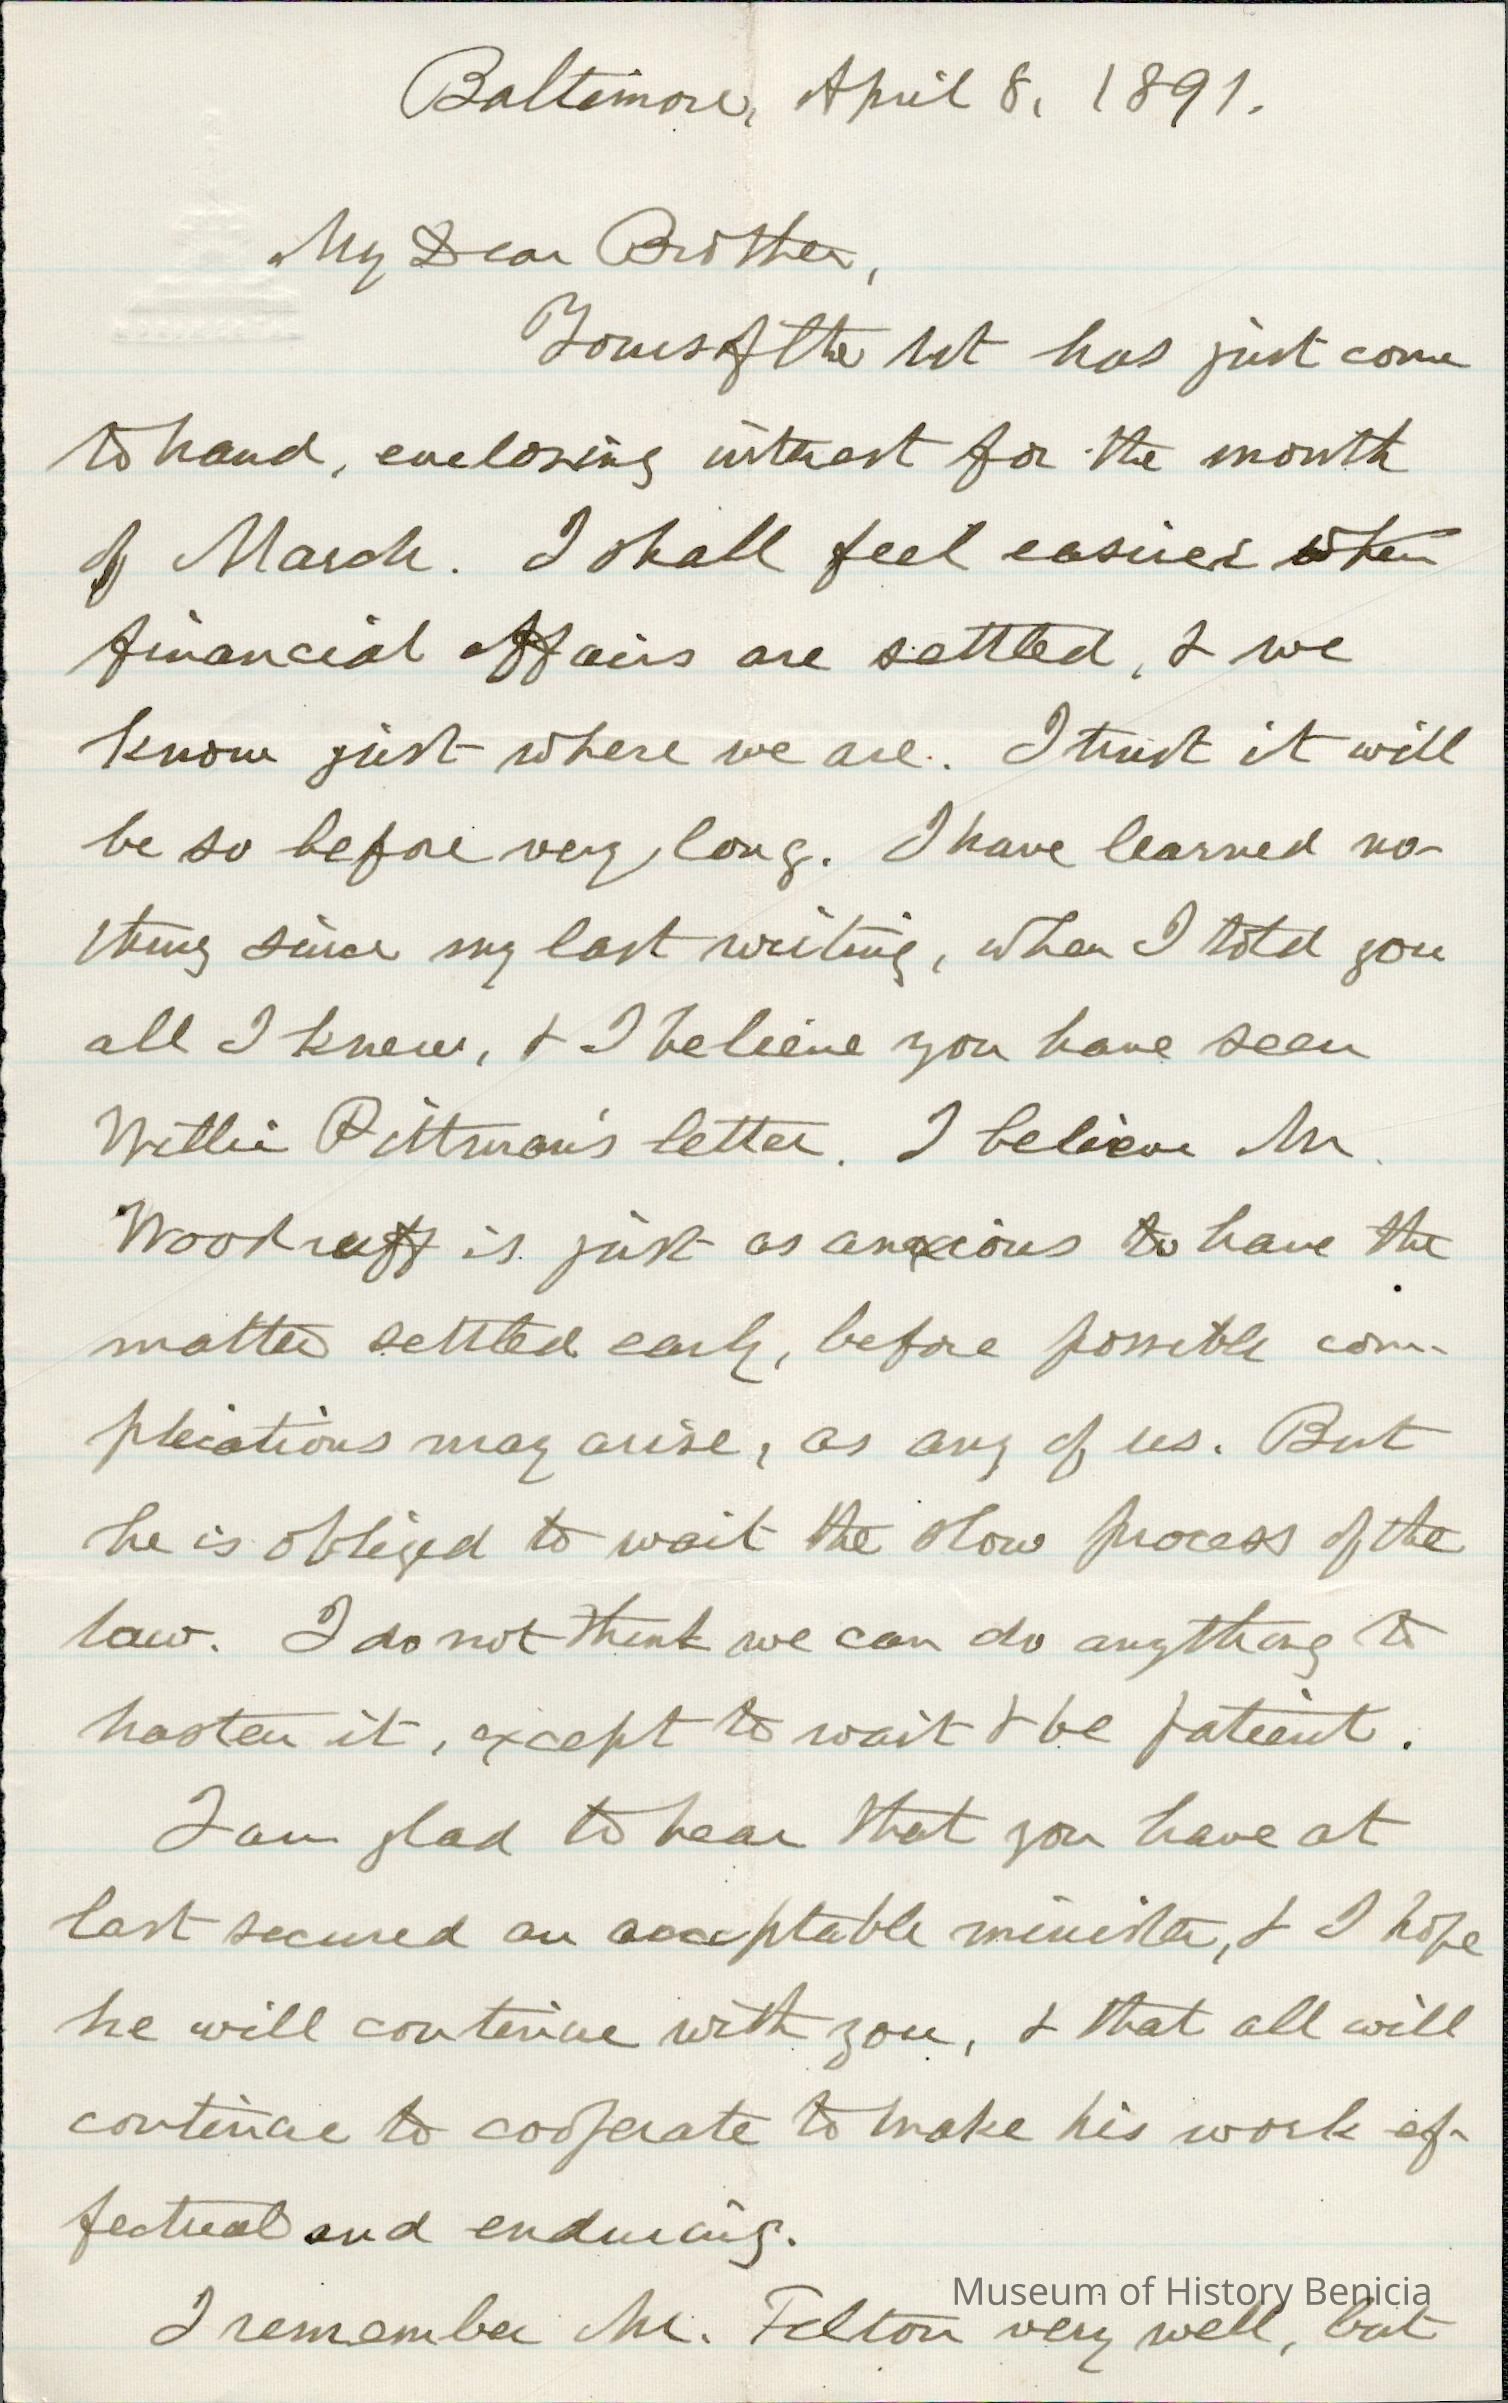 Baltimore, April 8, 1891.
My Dear Brother,
Yours of the 1st has just come
to hand, enclosing interest for the month
of March. I shall feel easier when
financial affairs are settled, & we
know just where we are. I trust it will
be so before very long. I have learned no-
thing since my last writing, when I told you
all I knew, & I believe you have seen
Willie Pittman's letter. I believe Mr.
Woodruff is just as anxious to have the
matter settled early, before possible com-
plications may arise, as any of us. But
he is obliged to wait the slow process of the
law. I do not think we can do anything to
hasten it, except to wait & be patient.
I am glad to hear that you have at
last secured an acceptable minister, & I hope
he will continue with you, & that all will
continue to cooperate to make his work ef-
fectual and enduring.
Museum of History Benicia
I remember Mr. Felton very well, but